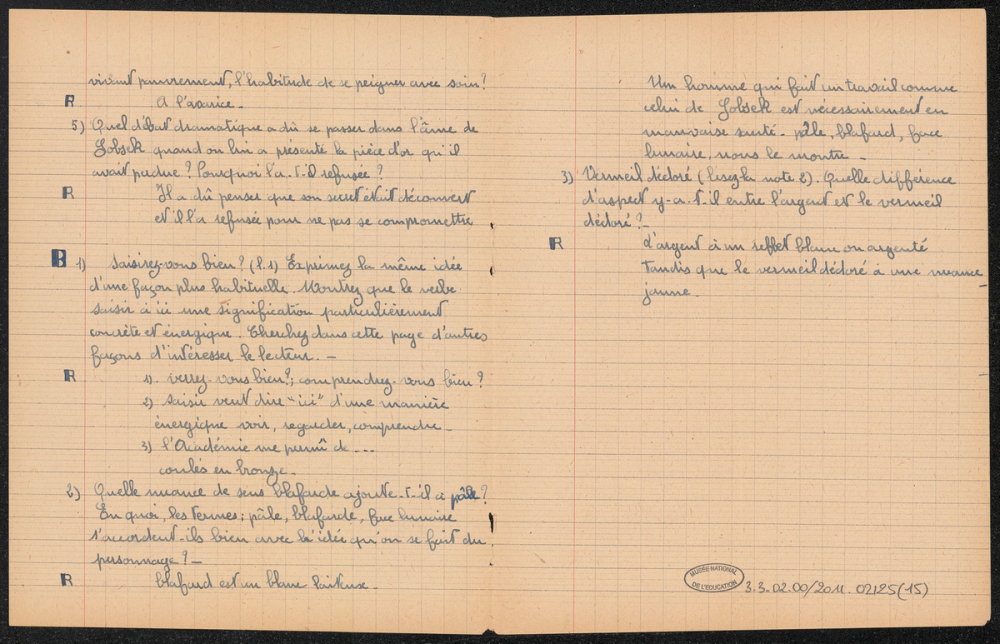 vivant pauvrement, l'habitude de se peigner avec soin?
R A l'avarice.
5) Quel débat dramatique a dû se passer dans l'âme de
Gobsek quand on lui a présenté la pièce d'or qu'il
avait perdue? Pourquoi l'a-t-il refusée?
R Il a dû penser que son secret était découvert
et il l'a refusée pour ne pas se compromettre
B 1) saisissez-vous bien? (l.1) Exprimez la même idée
d'une façon plus habituelle. Montrez que le verbe
saisir a ici une signification particulièrement
concrète et énergique. Cherchez dans cette page d'autres
façons d'intéresser le lecteur. -
R 1) verrez-vous bien?; comprendrez-vous bien?
2) saisir veut dire "ici" d'une manière
énergique voir, regarder, comprendre -
3) l'Académie me permît de ...
coulés en bronze -
2) Quelle nuance de sens blafarde ajoute-t-il à pâle?
En quoi, les termes; pâle, blafarde, face lunaire
s'accordent-ils bien avec l'idée qu'on se fait du
personnage? -
R blafard est un blanc laiteux -
Un homme qui fait un travail comme
celui de Gobsek est nécessairement en
mauvaise santé - pâle, blafard, face
lunaire, nous le montre -
3) Vermeil dédoré (lisez la note 2). Quelle différence
d'aspect y-a-t-il entre l'argent et le vermeil
dédoré? -
R L'argent à un reflet blanc ou argenté
tandis que le vermeil dédoré à une nuance
jaune -
MUSÉE NATIONAL
DE L'ÉDUCATION
3.3.02.00/2011.02125(15)